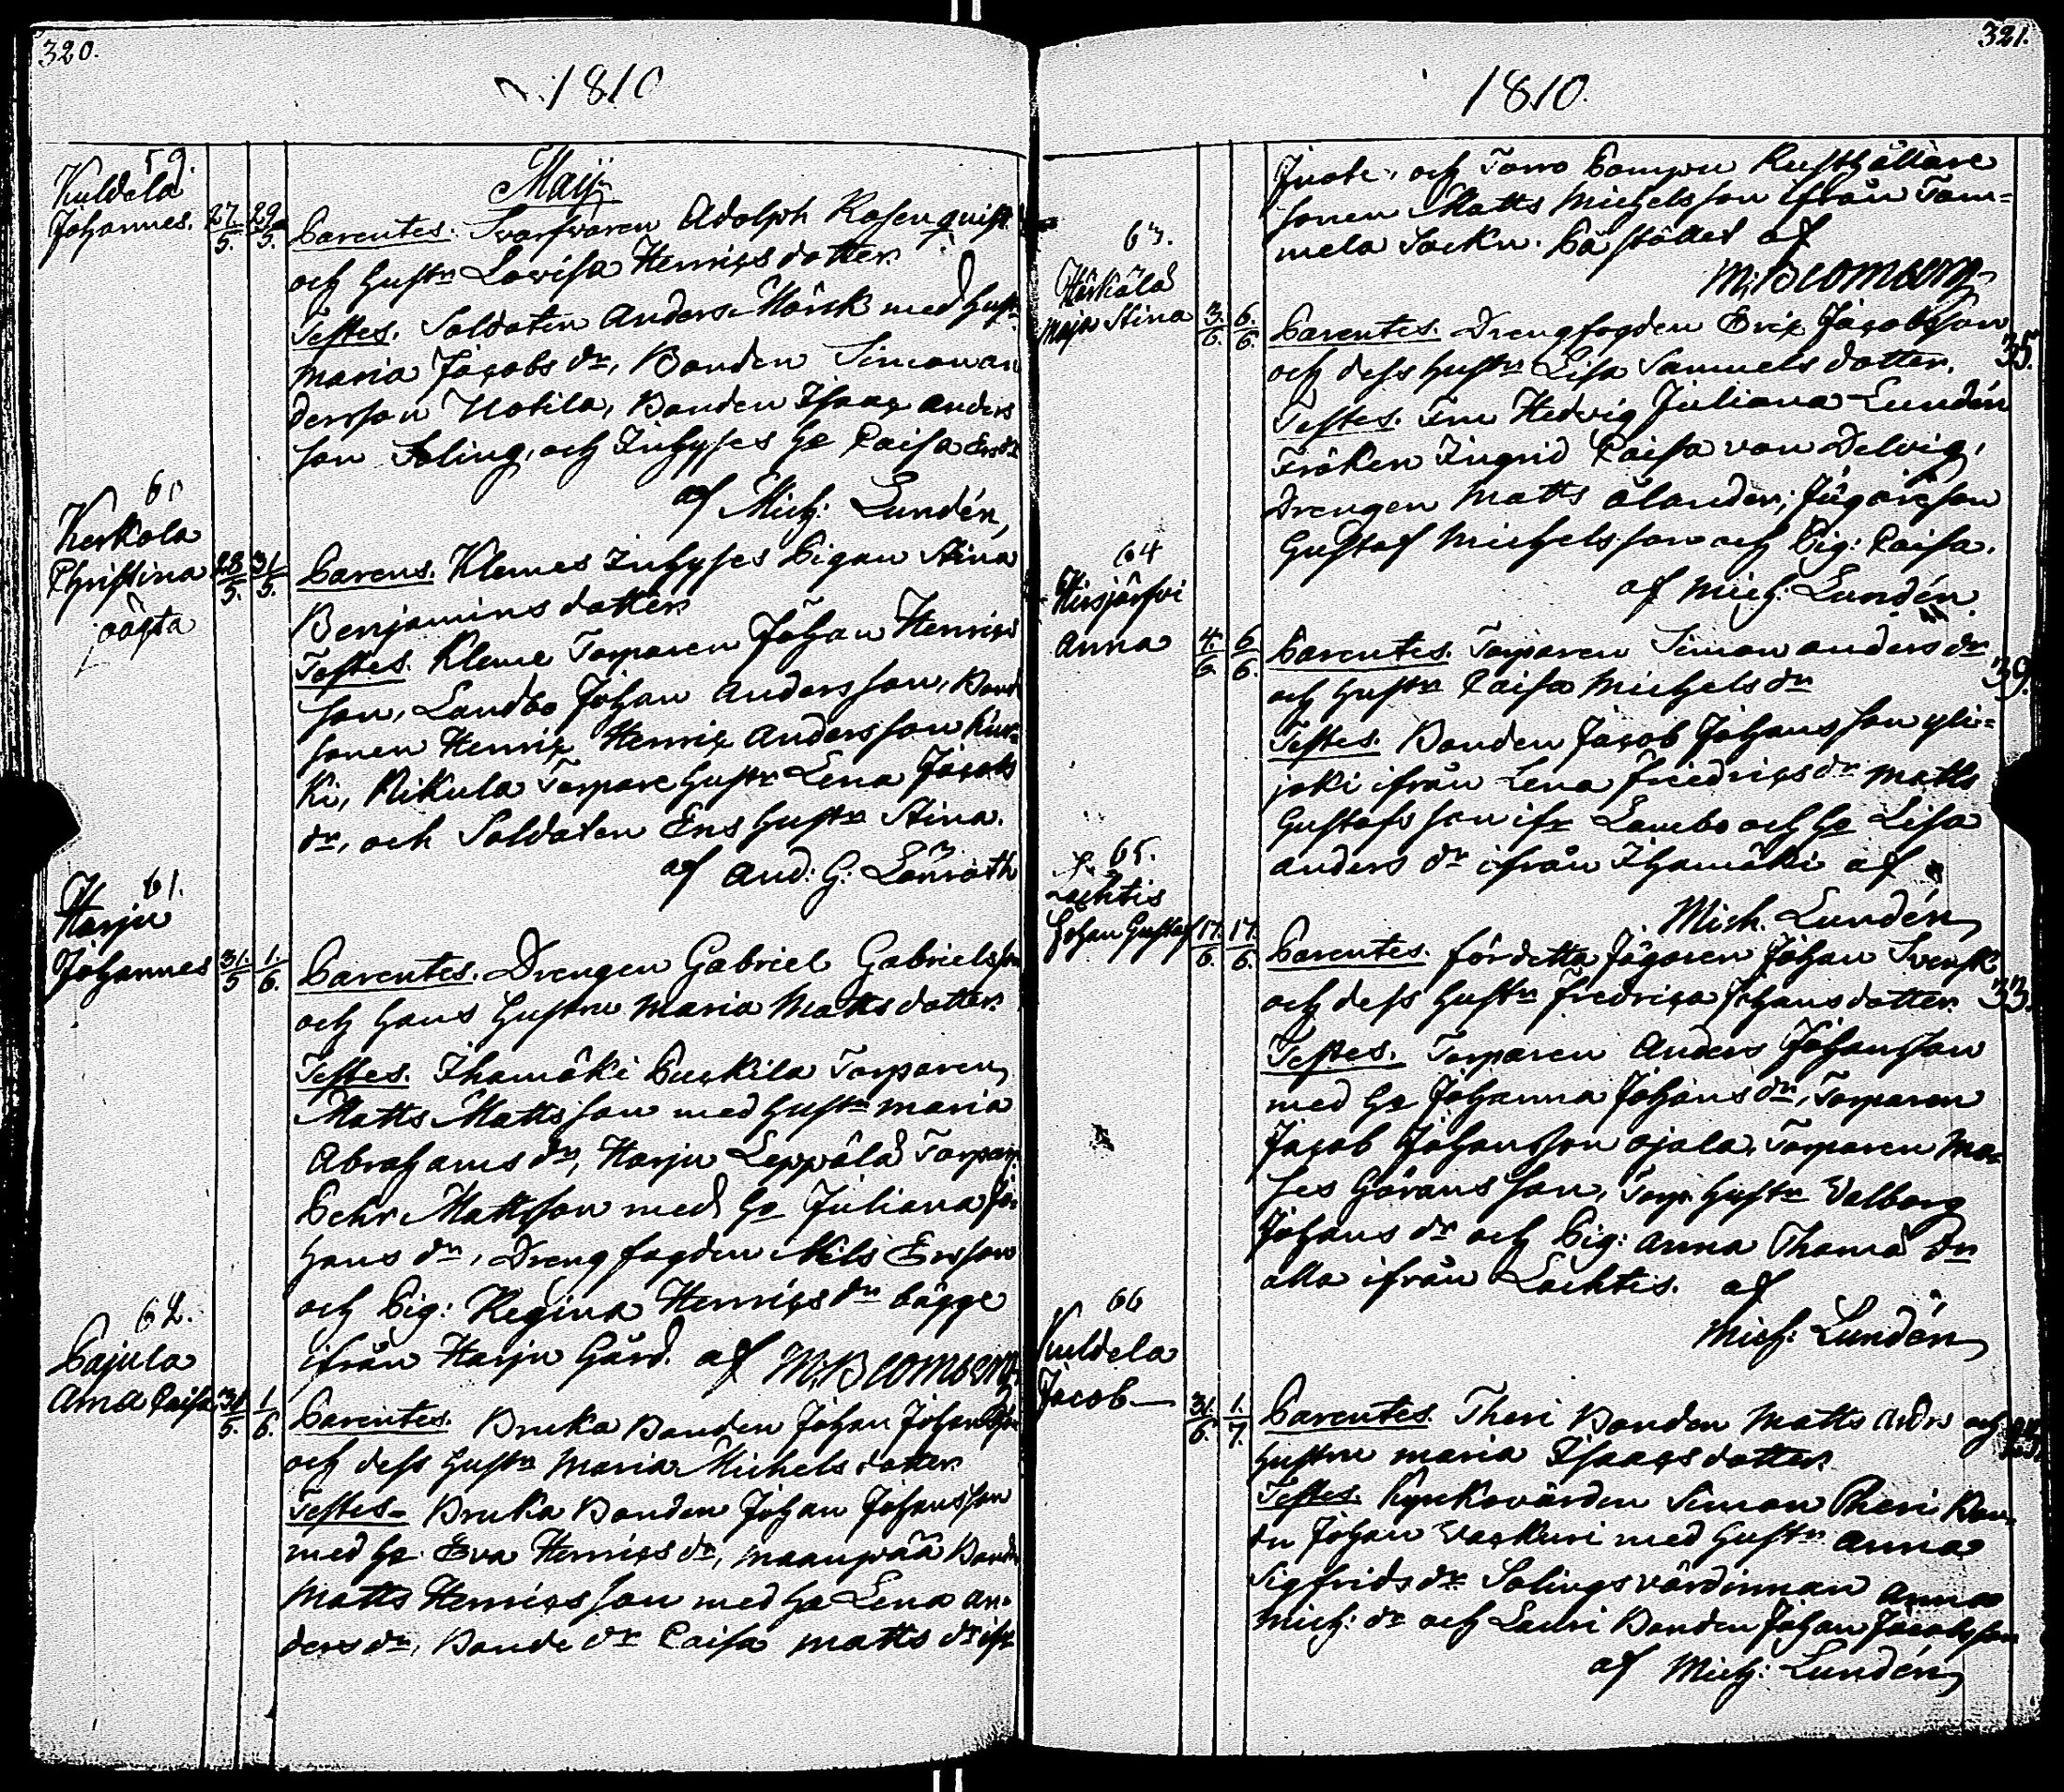 320.
1810
Maij
59.
Kuldela
Johannes. 27/5. 29/5.
Parentes. Svarfvaren Adolph Rosenquist
och Hustr Lovisa Henricsdotter.
Testes. Soldaten Anders Mörck med Hustr
Maria Jacobs dr, Bonden Simon An
dersson Uotila, Bonden Isaac Anders
son Soling, och Inhyses Ho Caisa Ersdr
af Mich: Lundén,
60
Kerkola
Christina 28/5. 31/5.
oägta
Parens. Klemes Inhyses Pigan Stina
Benjaminsdotter
Testes. Kleme Torparen Johan Henrics
son, Landbo Johan Andersson, Bond
sonen Henric Henric Andersson Kur-
ki, Rikula Torpare Hustr Lena Jacobs
dr, och Soldaten Ens Hustr Stina.
af And: G: Lönroth
61.
Harju
Johannes 31/5 1/6.
Parentes. Drengen Gabriel Gabrielsson
och hans Hustru Maria Mattsdotter.
Testes. Ihamäki Puckila Torparen
Matts Mattsson med Hustr Maria
Abrahams dr, Harju Leppälä Torpar.
Pehr Mattsson med Ho Juliana Jo-
hans dr, Drengfogden Nils Ersson
och Pig: Regina Henrics dr bägge
ifrån Harju Gård. af M: Blomberg
62.
Pajula
Anna Caisa 31/5. 1/6.
Parentes. Pruka Bonden Johan Johansson
och dess Hustr Maria Michelsdotter.
Testes. Pruka Bonden Johan Johansson
med Ho Eva Henrics dr, Maanpää Bonden
Matts Henricsson med Ho Lena An-
ders dr, Bonde dr Caisa Matts dr ifr
321.
1810.
Juote, och Torro Pampu Rusthållare
sonen Matts Michelsson ifrån Tam=
mela Sockn. På stället af
M: Blomberg
63.
Härkälä
Maja Stina 3/6. 6/6.
Parentes. Drengfogden Eric Jacobsson 35.
och dess Hustr Lisa Samuelsdotter.
Testes. Fru Hedvig Juliana Lundén
Fröken Ingrid Caisa von Delvig,
Drengen Matts Ålander, Jägareson
Gustaf Michelsson och Pig: Caisa.
af Mich: Lundén.
64
Hirsjärfvi
Anna 4/6. 6/6.
Parentes. Torparen Simon Anders dr 39.
och Hustr Caisa Michels dr
Testes. Bonden Jacob Johansson yli=
joki ifrån Lena Friedrics dr Matts
Gustafsson ifr Lambo och Ho Lisa
Anders dr ifrån Ihamäki af
Mich. Lundén
65.
Lachtis
Johan Gustaf 17/6. 17/6.
Parentes. för detta Jägaren Johan Svensk
och dess Hustr Fredrica Johansdotter. 33.
Testes. Torparen Anders Johansson
med Ho Johanna Johans dr, Torparen
Jacob Johansson Ojala, Torparen Mo-
ses Göransson, Torp. Hustr Valborg
Johans dr och Pig: Anna Thoma dr
alla ifrån Lachtis. af
Mich: Lundén
66
Kuldela
Jacob 31/6. 1/7.
Parentes. Theri Bonden Matts Andrs och 25.
Hustru Maria Isaacsdotter.
Testes. Kyrkovärden Simon Theri Bon-
den Johan Vackuri med Hustr Anna
Sigfrids dr Solings värdinnan Anna
Mich: dr och Lauri Bonden Johan Jacobsson
af Mich: Lundén